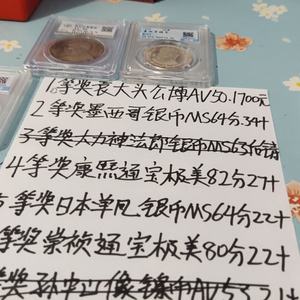 1等奖袁大头公博AV50.1700元
2等奖墨西哥银币MS64分.34+
3等奖大力神法郎银币MS63
4等奖康熙通宝极美82分27+
等奖日本单凡银币MS64分22+
等奖崇祯通宝极美80分22+
等奖孙中山像镍币AV53